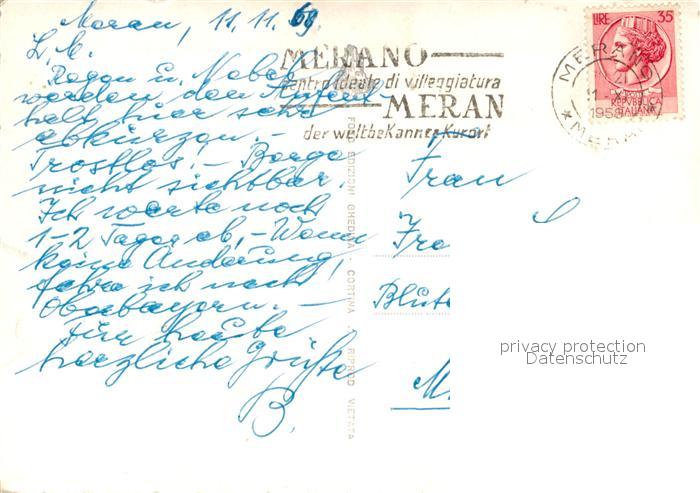 Meran, 11. 11.
L. M.
Regen u. Nebel
werden den Aufent-
halt hier sehr
abkürzen. -
Trostlos. - Berge
nicht sichtbar.
Ich warte noch
1-2 Tage ab, - Wenn
keine Änderung,
fahre ich nach
Oberbayern. -
Für heute
herzliche Grüße
B.
MERANO
centro ideale di villeggiatura
MERAN
der weltbekannte Kurort
LIRE 35
REPVBBLICA
ITALIANA
MERANO
FOTO EDIZIONI GHEDINA - CORTINA - RIPROD. VIETATA
Frau
Blute
M
privacy protection
Datenschutz